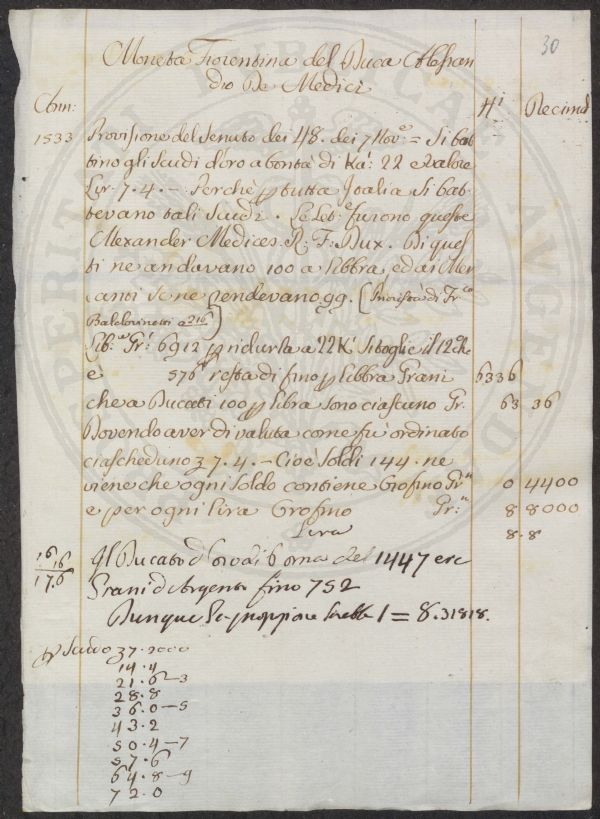 30
Moneta Fiorentina del Duca Alessan
dro De Medici
Ann: Hi Decimi
1533 Provisione del Senato dei 48. dei 7 Nov.e = Si bat
tino gli Scudi d'oro a bontà di Ka: 22 e valore
Lir. 7. 4. — Perchè p tutta Italia Si bat
tevano tali Scudi. Le Let:e furono queste
Alexander Medices. R. F. Dux. Di ques
ti ne andavano 100 a libbra, ed ai Mer
canti se ne rendevano 99. (Provista di Fr.co
Baldovinetti a 216)
Lib:a Gr: 6912 p ridurla a 22 K: Si toglie il 12 che
è 576 resta di fino p libbra Grani 6336
che a Ducati 100 p libra sono ciascuno Gr. 63 36
Dovendo aver di valuta come fù ordinato
ciascheduno 7. 4. — Cioè Soldi 144. ne
viene che ogni Soldo contiene Oro fino Gr.ni 0 4400
e per ogni Lira Oro fino Gr:ni 8 8000
Lira 8. 8
16
16
17.6
Il Ducato d'Oro di 6 orna del 1447 era
Grani d'Argento fino 752
Dunque la proppione sarebbe 1 = 8.31818.
p Scudo 7. 2000
14. 4
21. 6 — 3
28. 8
36. 0 — 5
43. 2
50. 4 — 7
57. 6
64. 8 — 9
72. 0
PERITIAM PUBLICAE AUGENDAE